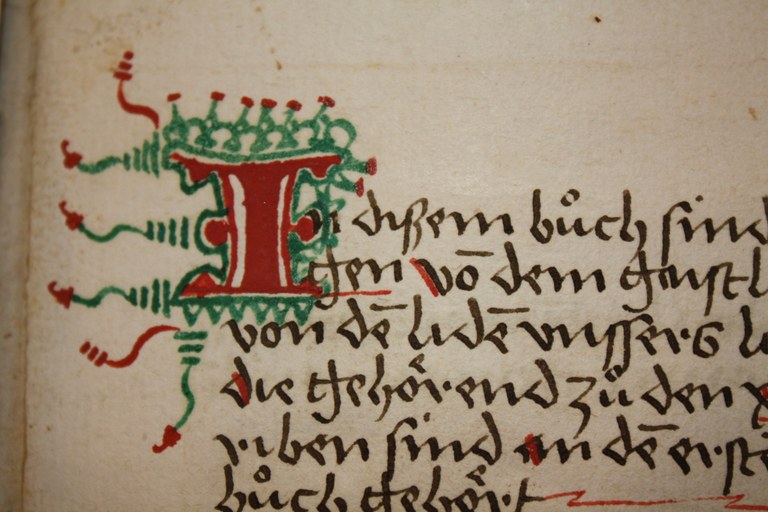 In dißem bůch sind
gen võ dem gaistl
von dē lidē vnssers l
die gehörend zů den x
riben sind an dē erste
bůch gehört